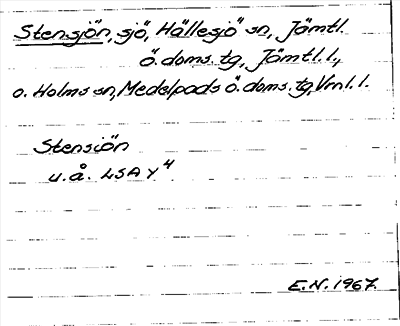 Stensjön, sjö, Hällesjö sn, Jämtl.
ö. doms. tg, Jämtl. l.,
o. Holms sn, Medelpads ö. doms. tg, Vrnl. l.
Stensiön
u.å. LSA Y 4
E.N. 1967